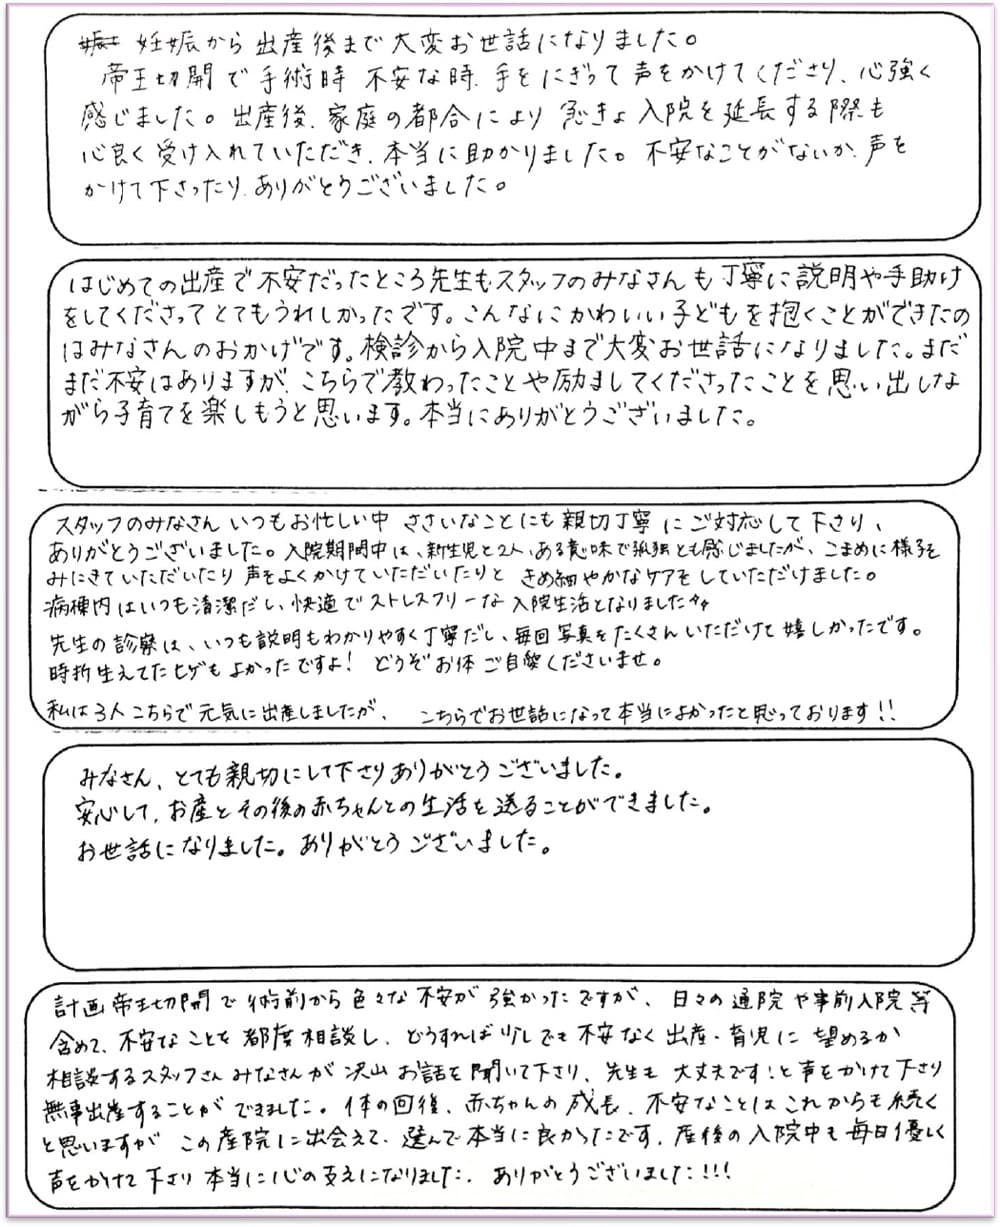 妊娠から出産後まで大変お世話になりました。
帝王切開で手術時 不安な時、手をにぎって声をかけてくださり、心強く
感じました。出産後、家庭の都合により 急きょ 入院を延長する際も
心良く受け入れていただき、本当に助かりました。不安なことがないか、声を
かけて下さったり、ありがとうございました。
はじめての出産で不安だったところ先生もスタッフのみなさんも丁寧に説明や手助け
をしてくださってとてもうれしかったです。こんなにかわいい子どもを抱くことができたの
はみなさんのおかげです。検診から入院中まで大変お世話になりました。まだ
まだ不安はありますが、こちらで教わったことや励ましてくださったことを思い出しな
がら子育てを楽しもうと思います。本当にありがとうございました。
スタッフのみなさん いつもお忙しい中 ささいなことにも親切丁寧にご対応して下さり、
ありがとうございました。入院期間中は、新生児と2人、ある意味で孤独とも感じましたが、こまめに様子を
みにきていただいたり 声をよくかけていただいたりと きめ細やかなケアをしていただけました。
病棟内はいつも清潔だし、快適でストレスフリーな入院生活となりました
先生の診察は、いつも説明もわかりやすく丁寧だし、毎回写真をたくさんいただけて嬉しかったです。
時折生えてたヒゲもよかったですよ! どうぞお体ご自愛くださいませ。
私は3人こちらで元気に出産しましたが、 こちらでお世話になって本当によかったと思っております!!
みなさん、とても親切にして下さりありがとうございました。
安心して、お産とその後の赤ちゃんとの生活を送ることができました。
お世話になりました。ありがとうございました。
計画帝王切開で術前から色々な不安が強かったですが、日々の通院や事前入院等
含めて、不安なことを都度相談し、どうすれば少しでも不安なく出産・育児に望めるか
相談するスタッフさんみなさんが沢山お話を聞いて下さり、先生も大丈夫です!と声をかけて下さり
無事出産することができました。体の回後、赤ちゃんの成長、不安なことはこれからも続く
と思いますが この産院に出会えて、選んで本当に良かったです。産後の入院中も毎日優しく
声をかけて下さり本当に心の支えになりました。ありがとうございました!!!